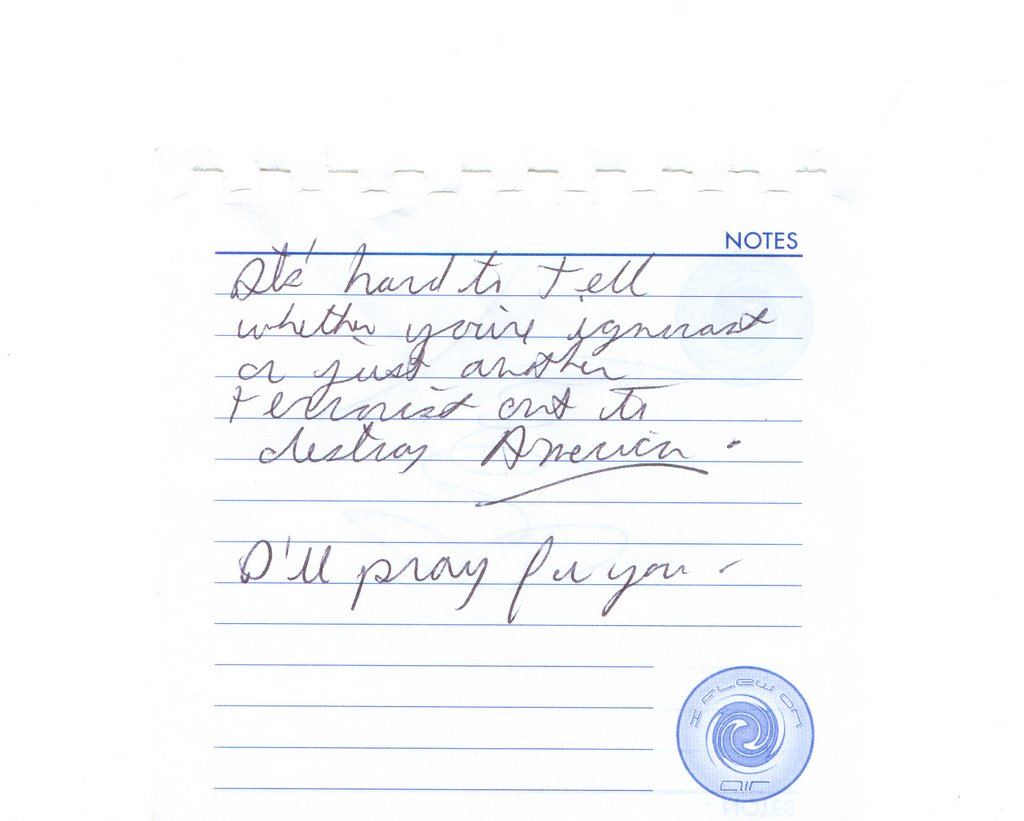 NOTES
It's hard to tell
whether you're ignorant
or just another
terrorist out to
destroy America.
I'll pray for you -
I FLEW ON
AIR
NOTES